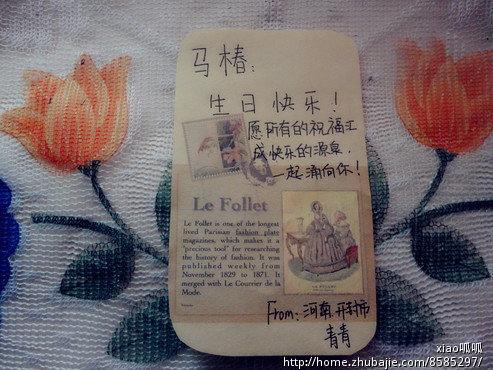 马椿:
生日快乐!
愿所有的祝福汇
成快乐的源泉.
一起涌向你!
Le Follet
Le Follet is one of the longest
lived Parisian fashion plate
magazines, which makes it a
"precious tool" for researching
the history of fashion. It was
published weekly from
November 1829 to 1871. It
merged with Le Courrier de la
Mode.
From: 河南 开封市
青青
xiao呱呱
http://home.zhubajie.com/8585297/